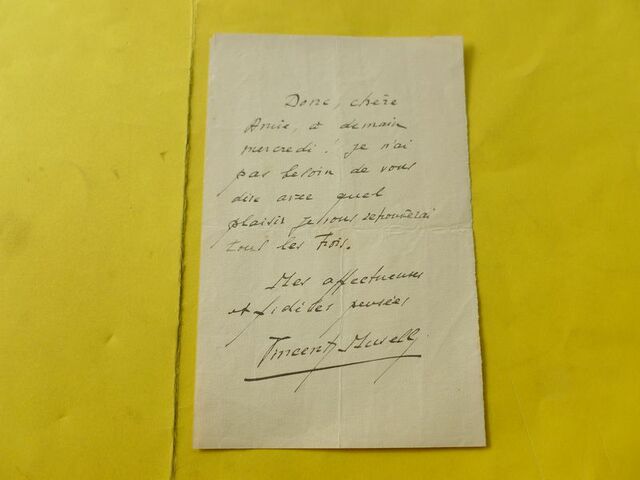 Donc, chère
Amie, à demain
mercredi ! Je n'ai
pas besoin de vous
dire avec quel
plaisir je vous retrouverai
tous les Trois.
Mes affectueuses
et fidèles pensées
Vincent Muselli